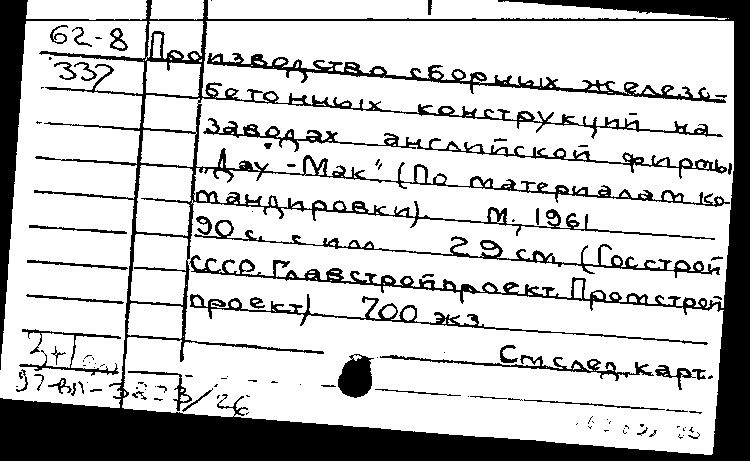 62-8
337
Производство сборных железо-
бетонных конструкций на
заводах английской фирмы
„Дау-Мак“ (По материалам ко
мандировки). М., 1961
90 с. с илл. 29 см. (Госстрой
СССР. Главстройпроект. Промстрой
проект). 700 экз.
См. след. карт.
3+1